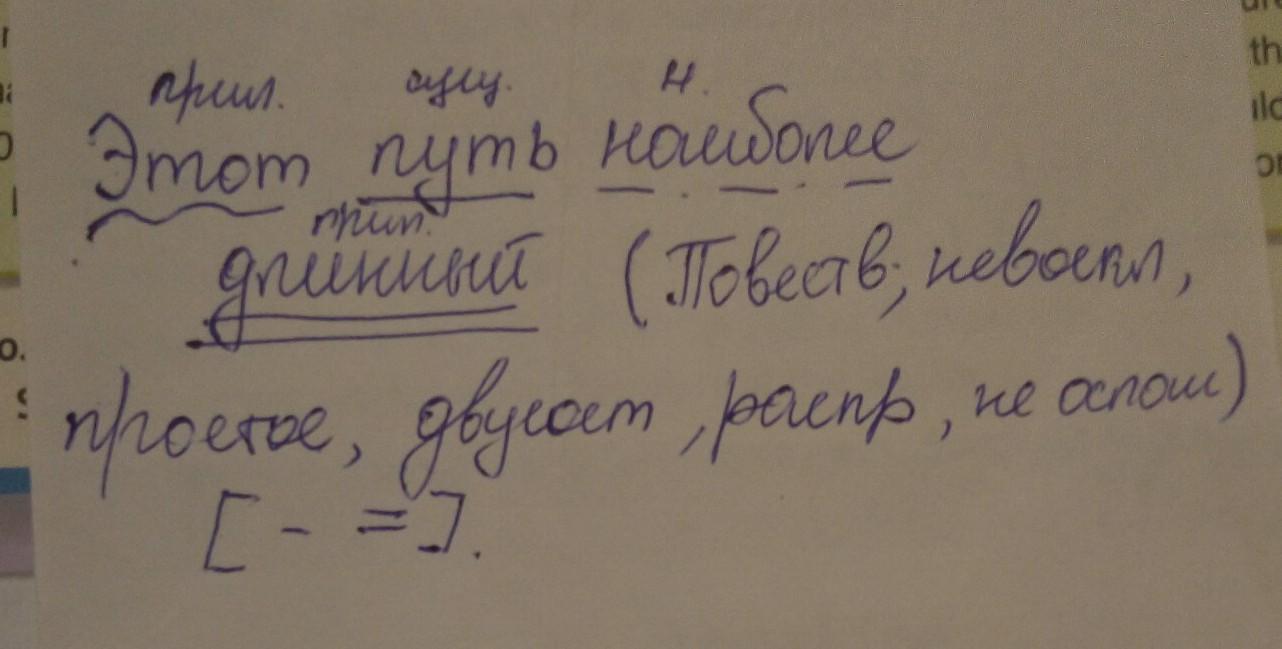 прил. сущ. н.
Этот путь наиболее
прил.
длинный (Повеств, невоскл,
простое, двусост, распр, не ослож)
[- =].